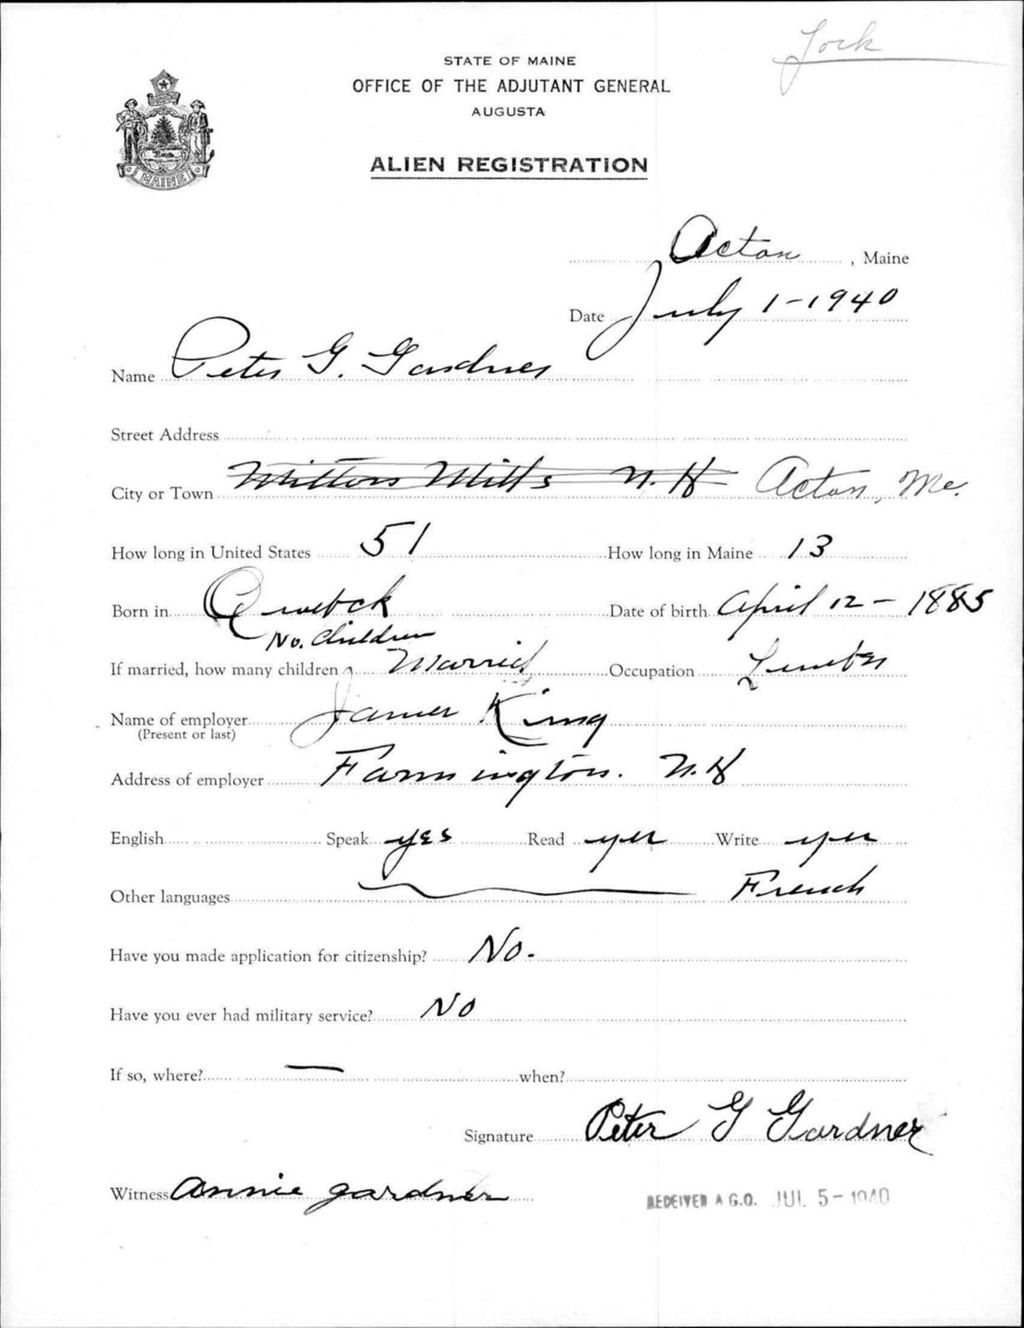 York
STATE OF MAINE
OFFICE OF THE ADJUTANT GENERAL
AUGUSTA
ALIEN REGISTRATION
MAINE
Acton, Maine
Date July 1-1940
Name Peter G. Gardner
Street Address
City or Town Milton Mills N.H Acton, Me.
How long in United States 51 How long in Maine 13
Born in Quebck Date of birth April 12-1885
No. Children
If married, how many children Married Occupation Lumber
Name of employer James King
(Present or last)
Address of employer Farmington. N.H
English Speak yes Read yes Write yes
Other languages French
Have you made application for citizenship? No.
Have you ever had military service? No
If so, where? — when?
Signature Peter G Gardner
Witness Annie gardner
RECEIVED A.G.O. JUL 5-1940